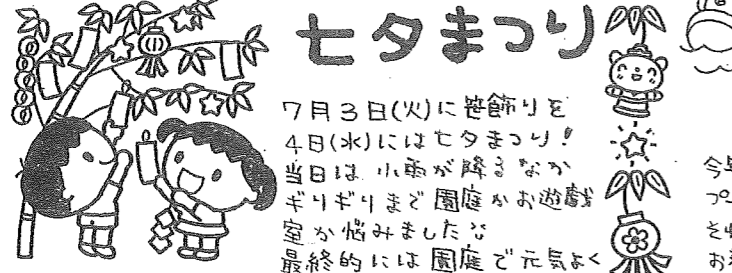 七夕まつり
7月3日(火)に笹飾りを
4日(水)には七夕まつり!
当日は小雨が降るなか
ギリギリまで園庭かお遊戯
室か悩みました
最終的には園庭で元気よく
今年
プ
それ
お